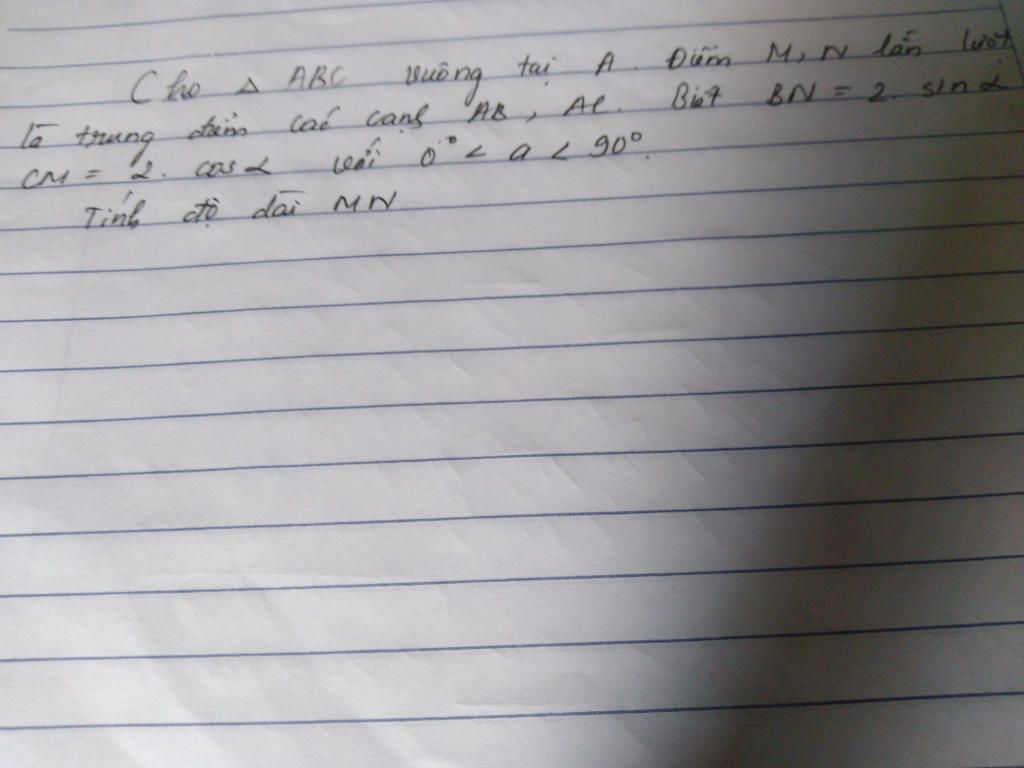 Cho Δ ABC vuông tại A. Điểm M, N lần lượt
là trung điểm các cạnh AB, AC. Biết BN = 2. sin α
CM = 2. cos α với 0° < α < 90°.
Tính độ dài MN